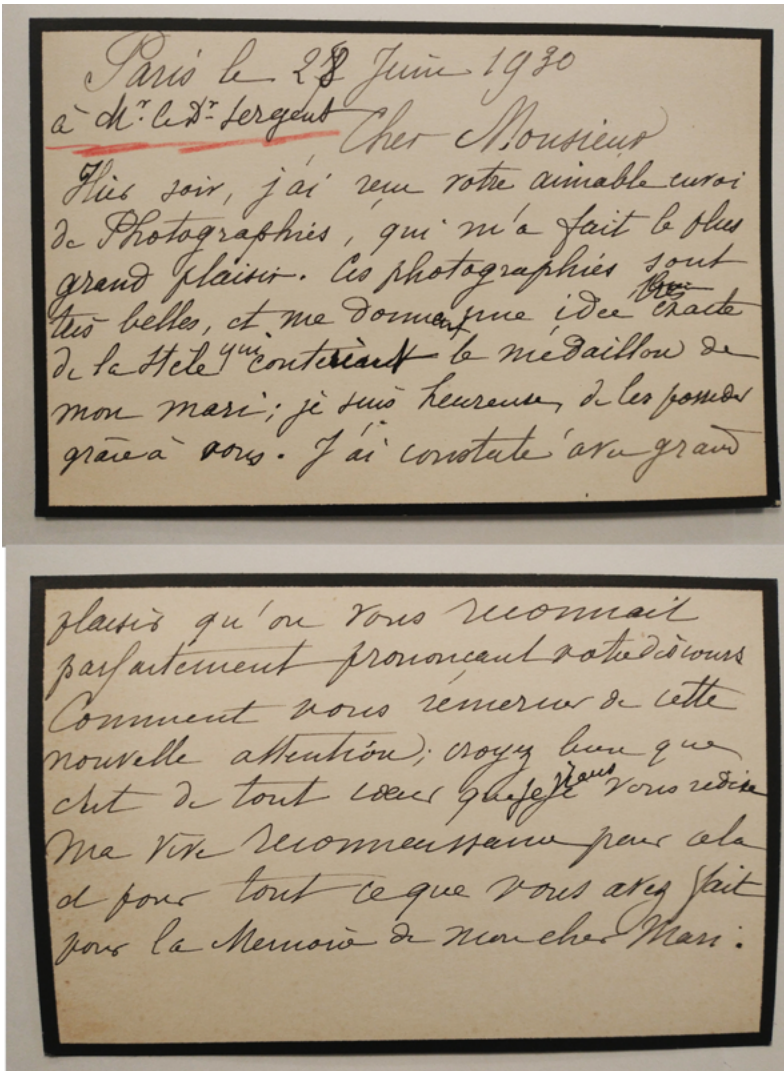 Paris le 28 Juin 1930
à Mr. le Dr. Sergent
Cher Monsieur
Hier soir, j'ai reçu votre aimable envoi
de Photographies, qui m'a fait le plus
grand plaisir. Ces photographies sont
très belles, et me donnent une idée très exacte
de la Stèle qui contenant le médaillon de
mon mari; je suis heureuse, de les posseder
grâce à vous. J'ai constaté avec grand
plaisir qu'on vous reconnait
parfaitement prononcant votre discours
Comment vous rémercier de cette
nouvelle attention; croyez bien que
c'est de tout cœur que je viens vous redire
Ma vive reconnaissance pour cela
et pour tout ce que vous avez fait
pour la Memoire de mon cher Mari.